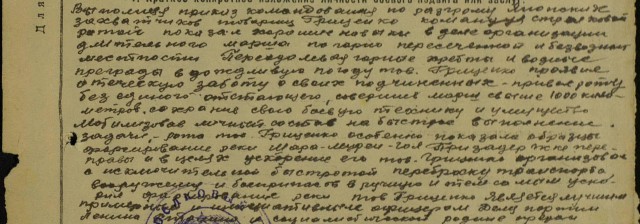 Выполняя приказ командования по разгрому японских
захватчиков товарищ Гриценко командуя стрелковой
ротой показал хорошие навыки в деле организации
длительного марша по горно пересеченной и безводной
местности Преодолевая горные хребты и водные
преграды в дождливую погоду тов. Гриценко проявил
отеческую заботу о своих подчиненных - привел роту
без единого отстающего, совершив марш свыше 1000 кило-
метров, сохранив свою боевую технику и имущество
Мобилизовав личный состав на быстрое выполнение
задачи, - рота тов. Гриценко особенно показала образцы
форсирование реки Шара-Мурен-Гол При задержке пере-
правы а в целях ускорения его тов. Гриценко организовал
с исключительной быстротой переброску транспорта
вооружения и боеприпасов в ручную и тем самым уско-
рил форсирование реки тов Гриценко является лично
примерным и инициативным офицером Делу партии
Ленина Сталина и социалистической родине предан